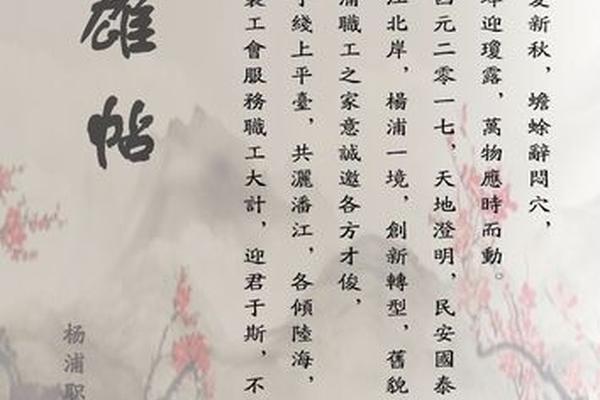 夏新秋，蟾蜍辭悶穴，
迎瓊露，萬物應時而動。
元二零一七，天地澄明，民安國泰
江北岸，楊浦一境，創新轉型，舊貌
浦職工之家意誠邀各方才俊，
于綫上平臺，共灑潘江，各傾陸海，
工會服務職工大計，迎君于斯，不
雄帖
杨浦职